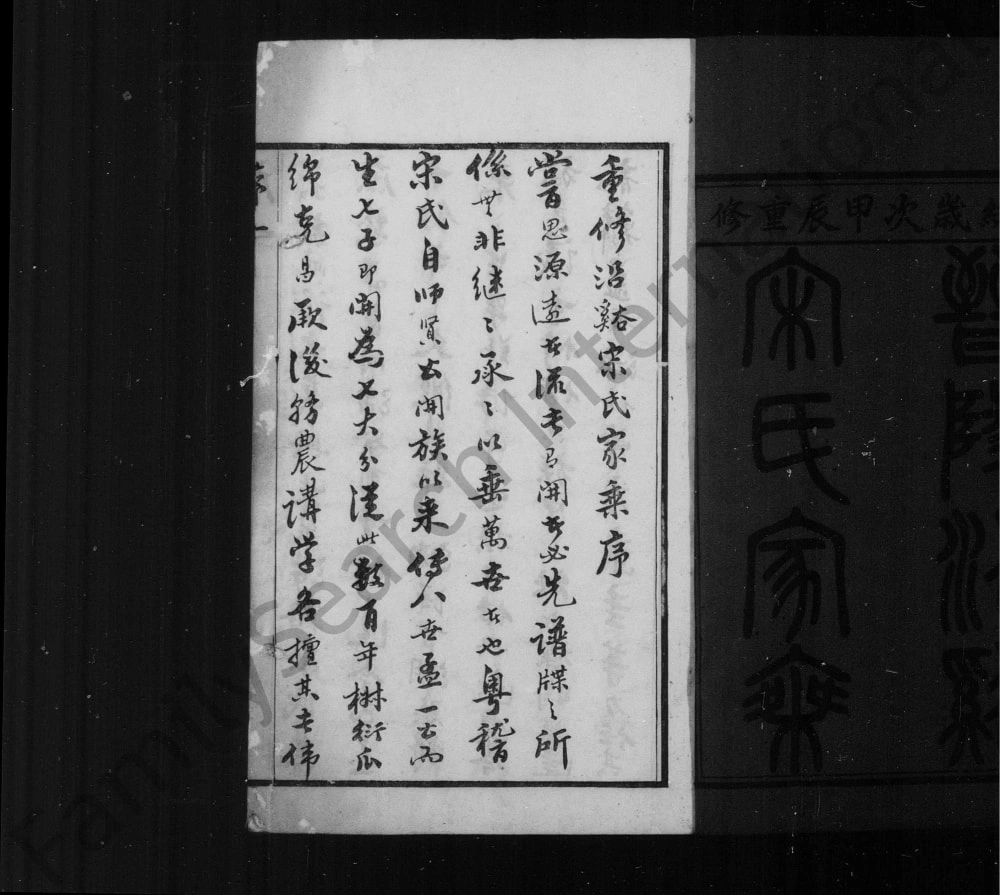 歲次甲辰重修
晉陵沿谿
宋氏家乘
重修沿谿宋氏家乘序
嘗思源遠者流長有開者必先譜牒之所
係無非继〻承〻以垂萬世者也粤稽
宋氏自师賢公開族以来傳八世孟一公而
生七子即開為七大分從此数百年椒衍瓜
綿克昌厥後務農講学各擅其長偉